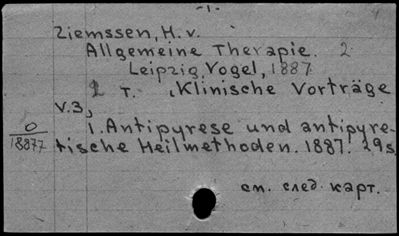 -1-
Ziemssen, H. v.
Allgemeine Therapie. 2
Leipzig, Vogel, 1887
2 T. , Klinische Vorträge
v.3,
1. Antipyrese und antipyre-
0
18877
tische Heilmethoden. 1887. 29s.
см. след. карт.